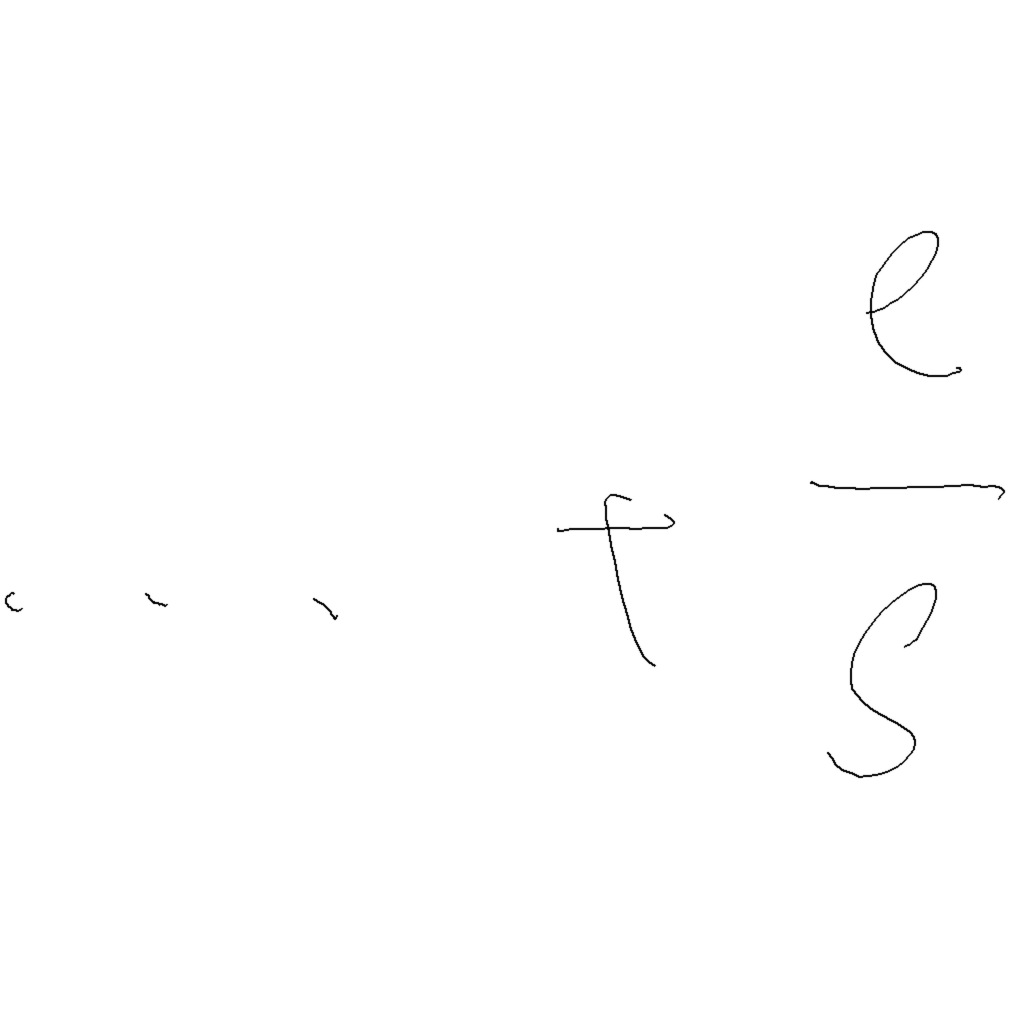 ... + e/s